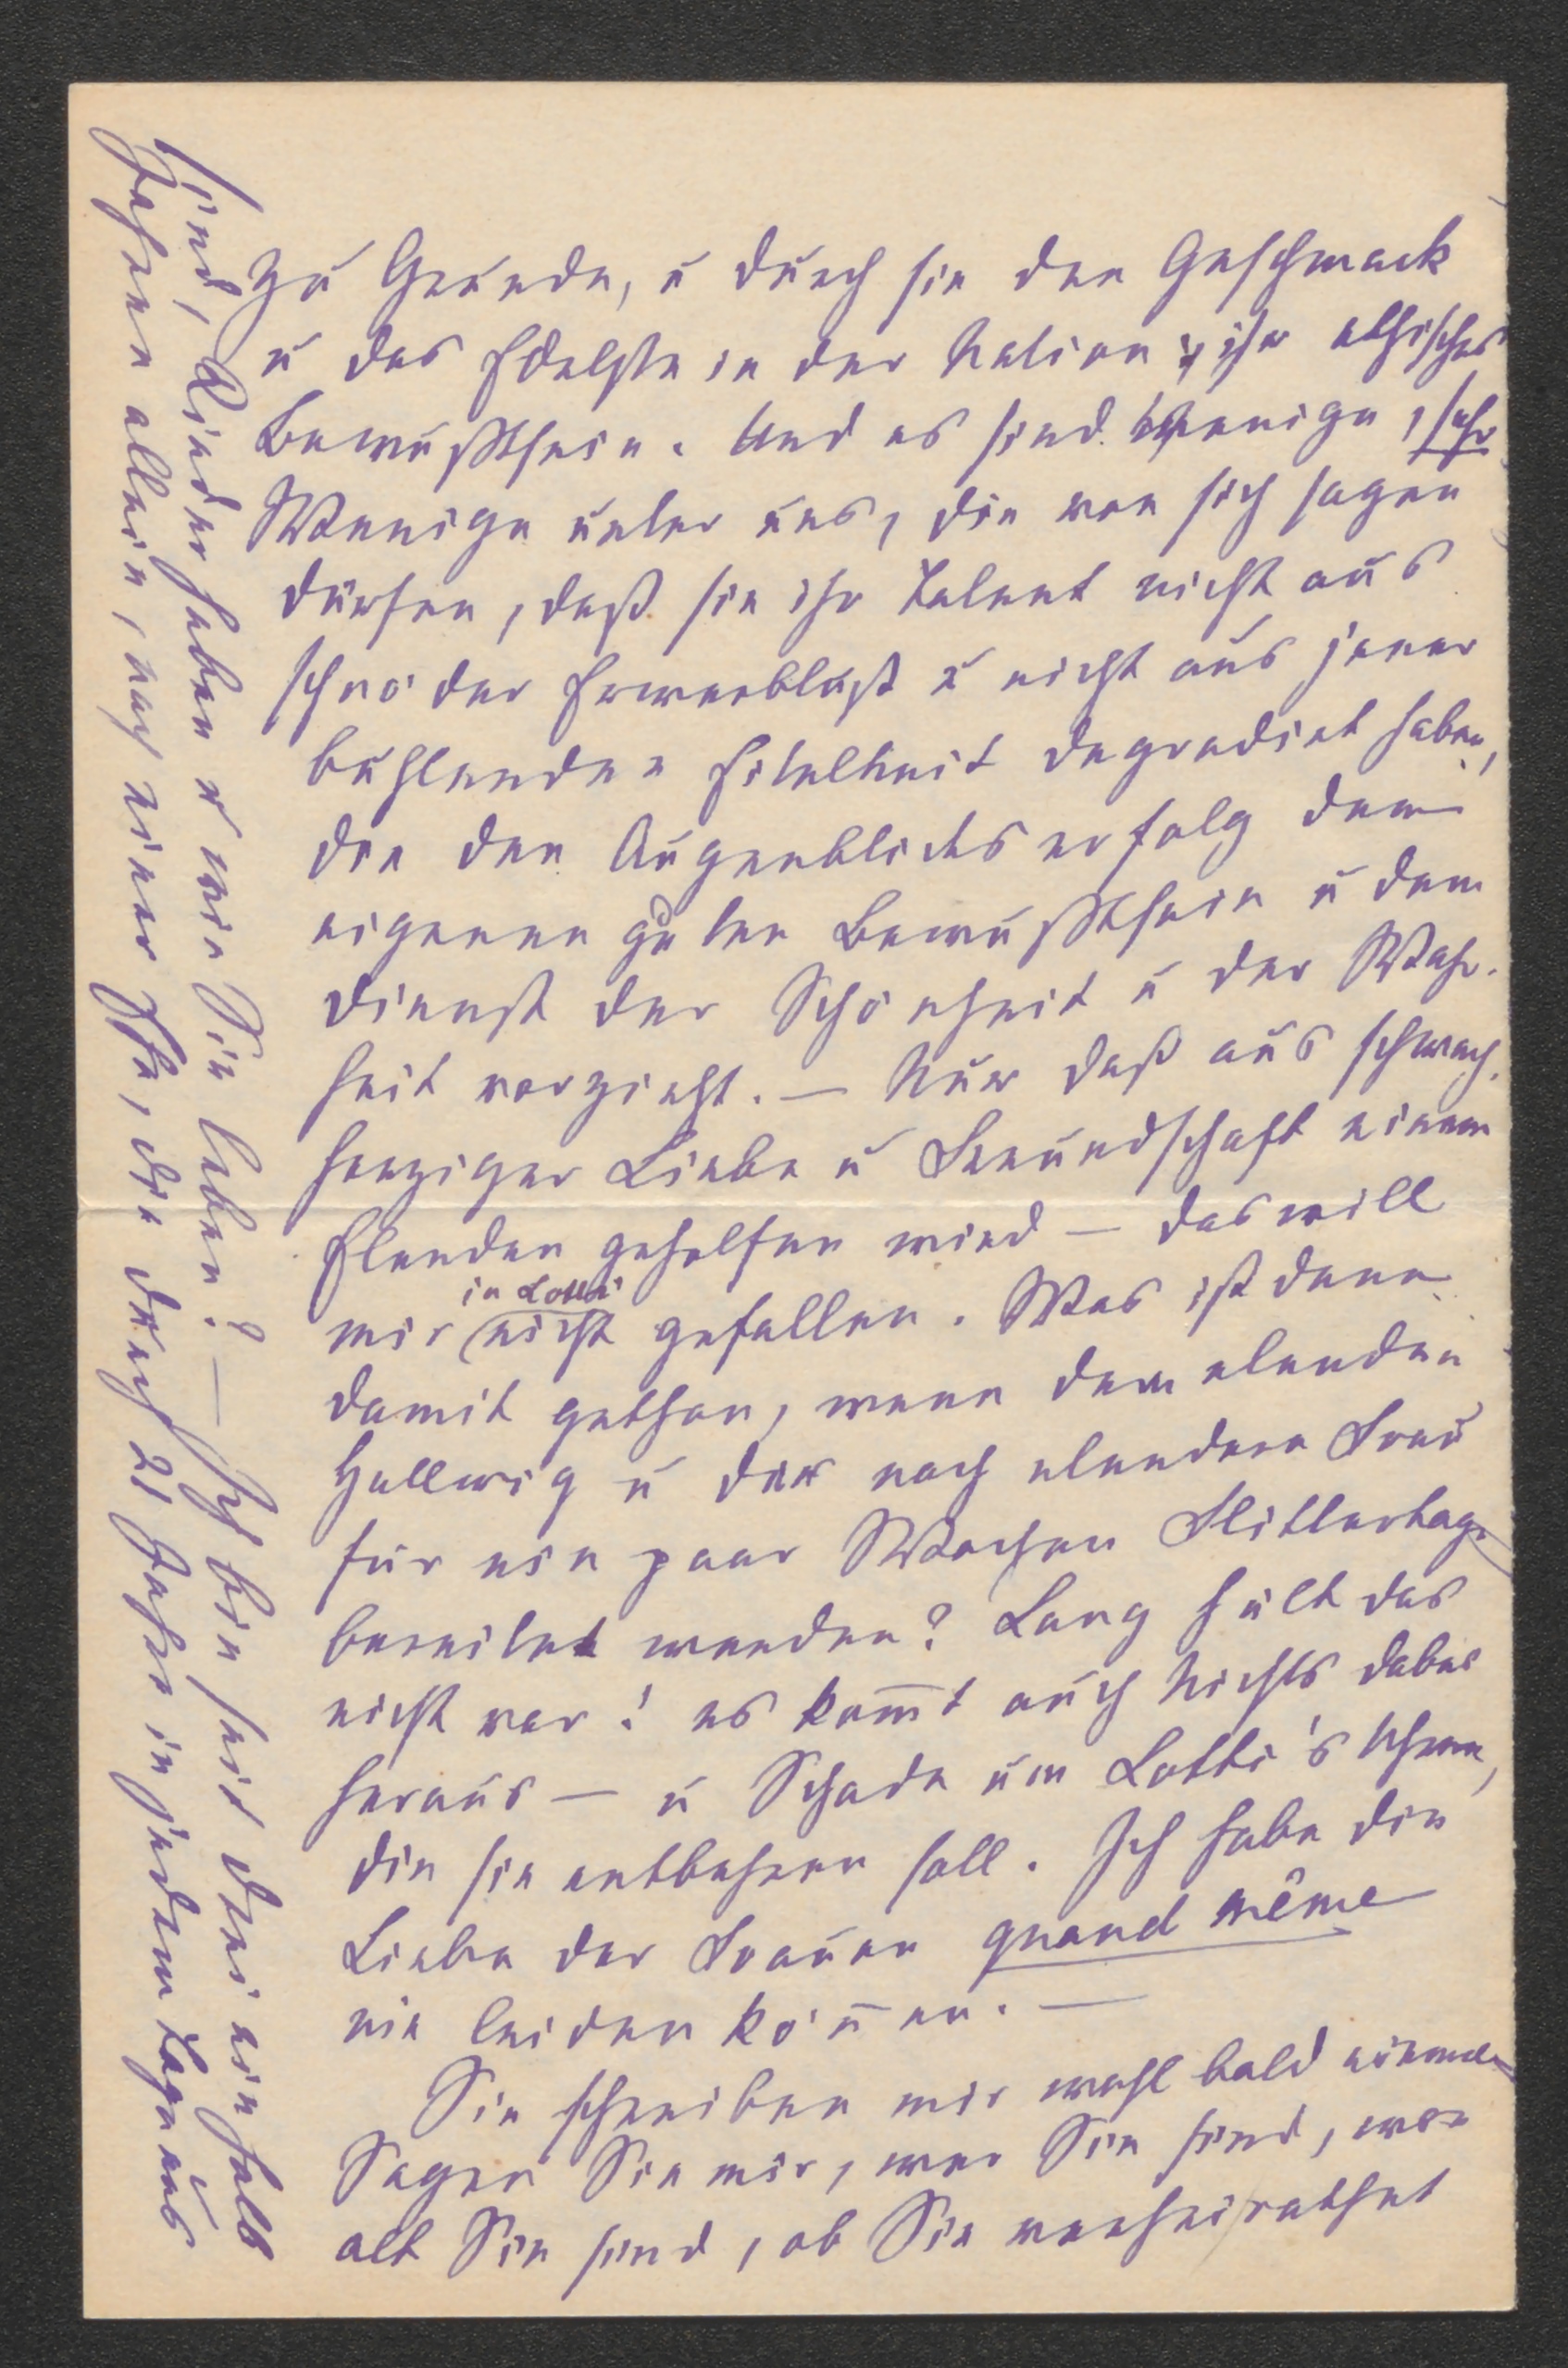 zu Grunde, u durch sie den Geschmack
u das Edelste in der Nation, ihr ethisches
Bewußtsein. Und es sind Wenige, sehr
Wenige unter uns, die von sich sagen
dürfen, daß sie ihr Talent nicht aus
schnöder Erwerblust u nicht aus jener
buhlenden Eitelkeit degradirt haben,
die den Augenblickserfolg dem
eigenen guten Bewußtsein u dem
Dienst der Schönheit u der Wahr-
heit vorzieht. — Nur daß aus schwach-
herziger Liebe u Freundschaft einem
Elenden geholfen wird — das will
mir in Lotti nicht gefallen. Was ist denn
damit gethan, wenn dem elenden
Hallwig u der noch elendern Frau
für ein paar Wochen Flittertage
bereitet werden? Lang hält das
nicht vor! es kom̄t auch Nichts dabei
heraus — u Schade um Lotti's Uhren,
die sie entbehren soll. Ich habe die
Liebe der Frauen quand même
nie leiden kön̄en. —
Sie schreiben mir wohl bald einmal
Sagen Sie mir, wer Sie sind, wie
alt Sie sind, ob Sie verheirathet
sind, Kinder haben u wie Sie leben? — Ich bin seit drei ein halb
Jahren allein, nach einer Ehe, die durch 21 Jahre in jedem Tage aus